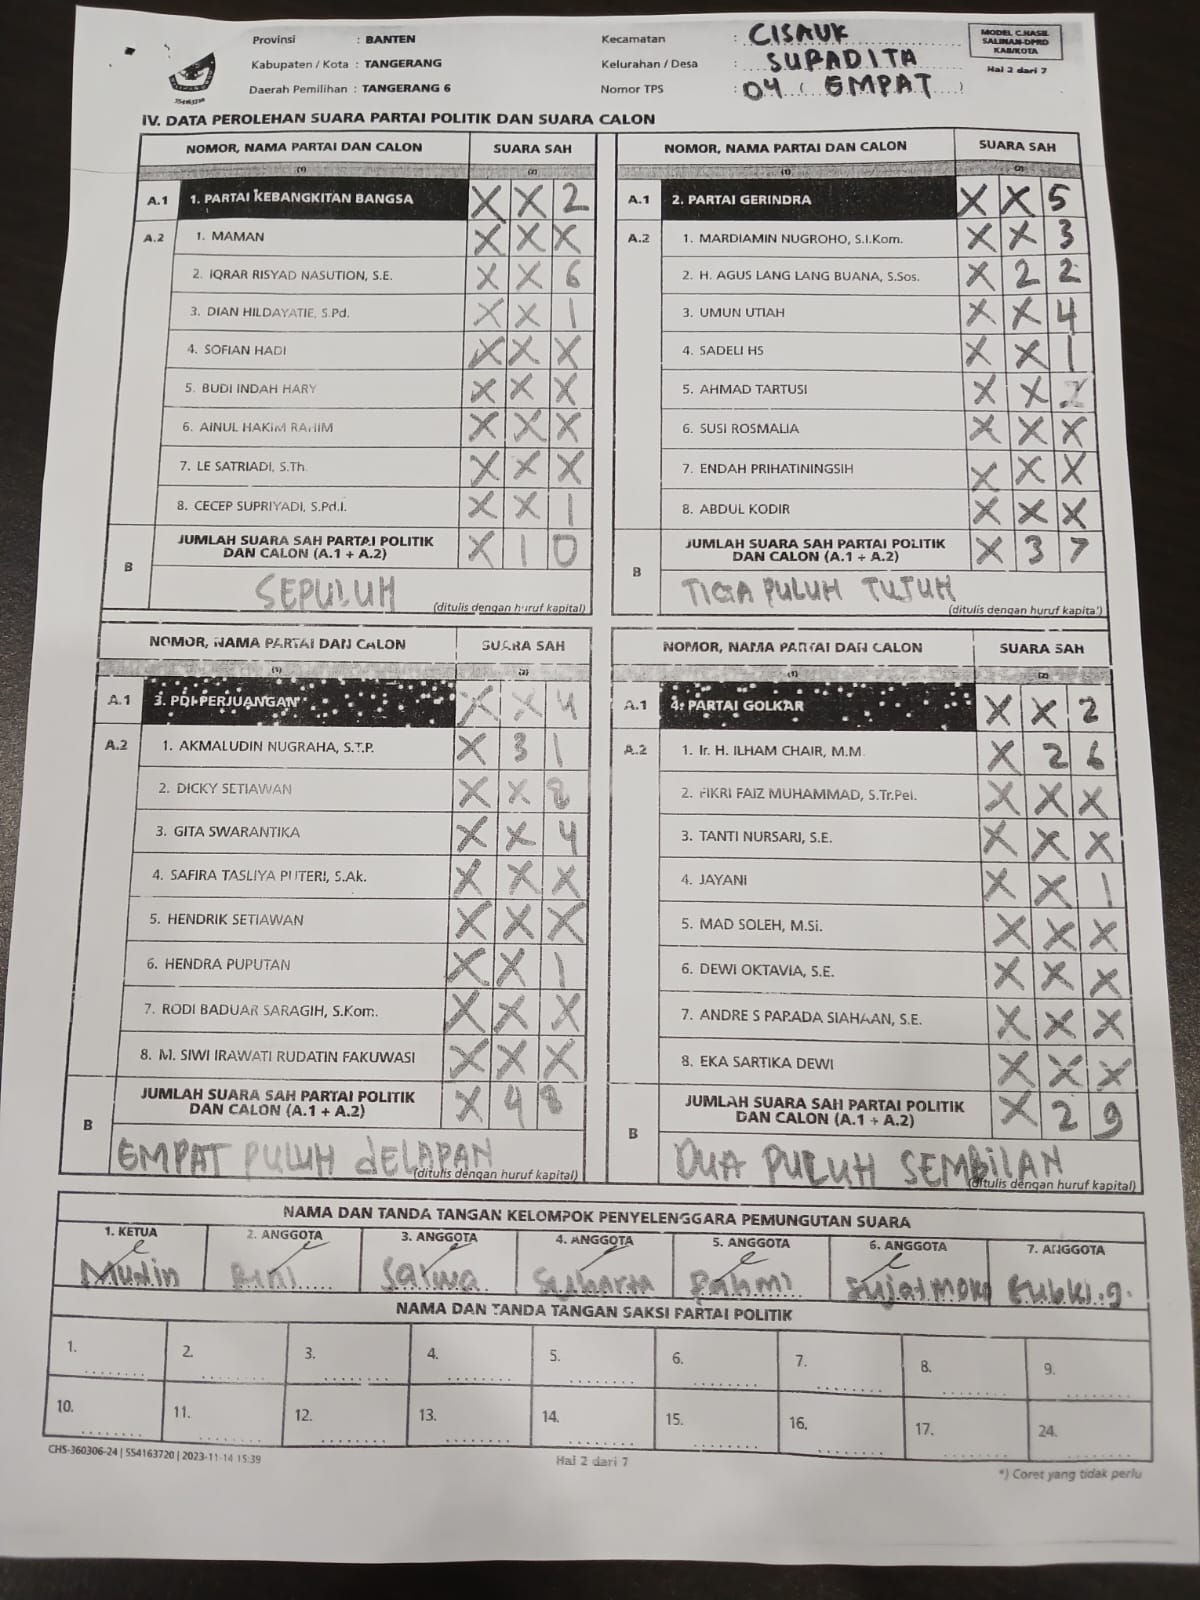 Provinsi : BANTEN
Kabupaten / Kota : TANGERANG
Daerah Pemilihan : TANGERANG 6
Kecamatan : CISAUK
Kelurahan / Desa : SUPADITA
Nomor TPS : 04 ( EMPAT )
MODEL C.HASIL
SALINAN-DPRD
KAB/KOTA
Hal 2 dari 7
554163720
IV. DATA PEROLEHAN SUARA PARTAI POLITIK DAN SUARA CALON
NOMOR, NAMA PARTAI DAN CALON SUARA SAH
(1) (2)
A.1 1. PARTAI KEBANGKITAN BANGSA X X 2
A.2 1. MAMAN X X X
2. IQRAR RISYAD NASUTION, S.E. X X 6
3. DIAN HILDAYATIE, S.Pd. X X 1
4. SOFIAN HADI X X X
5. BUDI INDAH HARY X X X
6. AINUL HAKIM RAHIM X X X
7. LE SATRIADI, S.Th. X X X
8. CECEP SUPRIYADI, S.Pd.I. X X 1
B JUMLAH SUARA SAH PARTAI POLITIK
DAN CALON (A.1 + A.2) X 1 0
SEPULUH
(ditulis dengan huruf kapital)
NOMOR, NAMA PARTAI DAN CALON SUARA SAH
(1) (2)
A.1 2. PARTAI GERINDRA X X 5
A.2 1. MARDIAMIN NUGROHO, S.I.Kom. X X 3
2. H. AGUS LANG LANG BUANA, S.Sos. X 2 2
3. UMUN UTIAH X X 4
4. SADELI HS X X 1
5. AHMAD TARTUSI X X 2
6. SUSI ROSMALIA X X X
7. ENDAH PRIHATININGSIH X X X
8. ABDUL KODIR X X X
B JUMLAH SUARA SAH PARTAI POLITIK
DAN CALON (A.1 + A.2) X 3 7
TIGA PULUH TUJUH
(ditulis dengan huruf kapital)
NOMOR, NAMA PARTAI DAN CALON SUARA SAH
(1) (2)
A.1 3. PDI PERJUANGAN X X 4
A.2 1. AKMALUDIN NUGRAHA, S.T.P. X 3 1
2. DICKY SETIAWAN X X 8
3. GITA SWARANTIKA X X 4
4. SAFIRA TASLIYA PUTERI, S.Ak. X X X
5. HENDRIK SETIAWAN X X X
6. HENDRA PUPUTAN X X 1
7. RODI BADUAR SARAGIH, S.Kom. X X X
8. M. SIWI IRAWATI RUDATIN FAKUWASI X X X
B JUMLAH SUARA SAH PARTAI POLITIK
DAN CALON (A.1 + A.2) X 4 8
EMPAT PULUH dELAPAN
(ditulis dengan huruf kapital)
NOMOR, NAMA PARTAI DAN CALON SUARA SAH
(1) (2)
A.1 4. PARTAI GOLKAR X X 2
A.2 1. Ir. H. ILHAM CHAIR, M.M. X 2 6
2. FIKRI FAIZ MUHAMMAD, S.Tr.Pel. X X X
3. TANTI NURSARI, S.E. X X X
4. JAYANI X X 1
5. MAD SOLEH, M.Si. X X X
6. DEWI OKTAVIA, S.E. X X X
7. ANDRE S PARADA SIAHAAN, S.E. X X X
8. EKA SARTIKA DEWI X X X
B JUMLAH SUARA SAH PARTAI POLITIK
DAN CALON (A.1 + A.2) X 2 9
DUA PULUH SEMBILAN
(ditulis dengan huruf kapital)
NAMA DAN TANDA TANGAN KELOMPOK PENYELENGGARA PEMUNGUTAN SUARA
1. KETUA 2. ANGGOTA 3. ANGGOTA 4. ANGGOTA 5. ANGGOTA 6. ANGGOTA 7. ANGGOTA
Mudin Salwa Suharta Fahmi Sujatmoko
NAMA DAN TANDA TANGAN SAKSI PARTAI POLITIK
1. 2. 3. 4. 5. 6. 7. 8. 9.
10. 11. 12. 13. 14. 15. 16. 17. 24.
CHS-360306-24 | 554163720 | 2023-11-14 15:39
Hal 2 dari 7
*) Coret yang tidak perlu